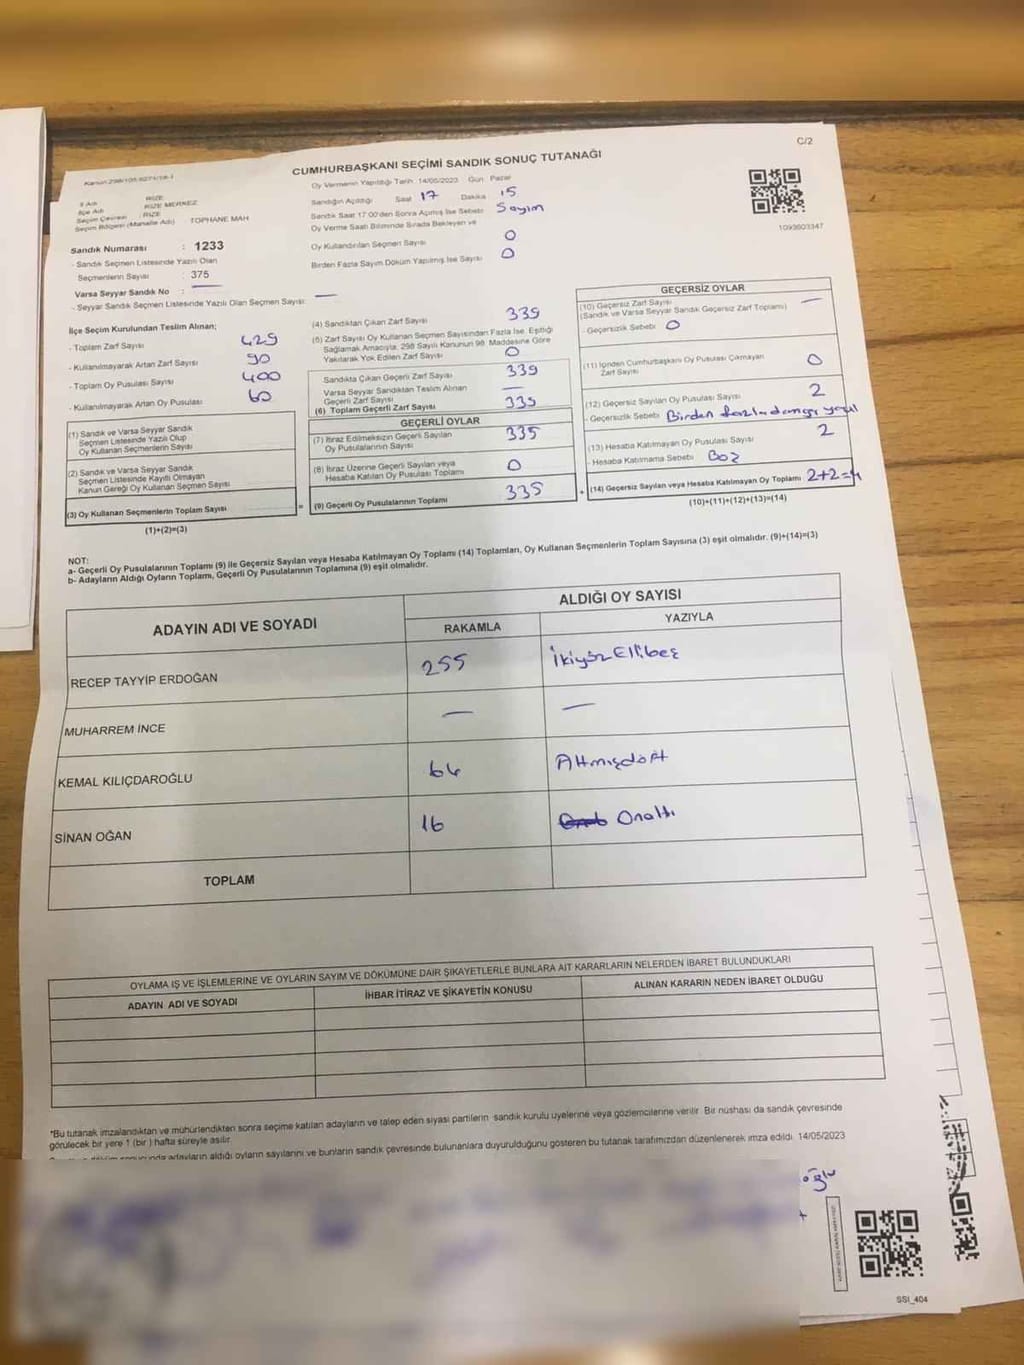 C/2
Kanun:298/105-6271/18-1
CUMHURBAŞKANI SEÇİMİ SANDIK SONUÇ TUTANAĞI
Oy Vermenin Yapıldığı Tarih :14/05/2023 Gün : Pazar
İl Adı : RİZE
İlçe Adı : RİZE MERKEZ
Seçim Çevresi : RİZE
Seçim Bölgesi (Mahalle Adı) : TOPHANE MAH
Sandığın Açıldığı Saat 17 Dakika 15
Sandık Saat 17:00'den Sonra Açılmış İse Sebebi Sayım
Oy Verme Saati Bitiminde Sırada Bekleyen ve
Oy Kullandırılan Seçmen Sayısı 0
Birden Fazla Sayım Döküm Yapılmış İse Sayısı 0
1093603347
Sandık Numarası : 1233
- Sandık Seçmen Listesinde Yazılı Olan
Seçmenlerin Sayısı : 375
Varsa Seyyar Sandık No : —
- Seyyar Sandık Seçmen Listesinde Yazılı Olan Seçmen Sayısı: —
İlçe Seçim Kurulundan Teslim Alınan;
- Toplam Zarf Sayısı 429
- Kullanılmayarak Artan Zarf Sayısı 90
- Toplam Oy Pusulası Sayısı 400
- Kullanılmayarak Artan Oy Pusulası 60
(1) Sandık ve Varsa Seyyar Sandık
Seçmen Listesinde Yazılı Olup
Oy Kullanan Seçmenlerin Sayısı
(2) Sandık ve Varsa Seyyar Sandık
Seçmen Listesinde Kayıtlı Olmayan
Kanun Gereği Oy Kullanan Seçmen Sayısı
(3) Oy Kullanan Seçmenlerin Toplam Sayısı
(1)+(2)=(3)
=
(4) Sandıktan Çıkan Zarf Sayısı 339
(5) Zarf Sayısı Oy Kullanan Seçmen Sayısından Fazla İse, Eşitliği
Sağlamak Amacıyla, 298 Sayılı Kanunun 98. Maddesine Göre
Yakılarak Yok Edilen Zarf Sayısı 0
Sandıkta Çıkan Geçerli Zarf Sayısı 339
Varsa Seyyar Sandıktan Teslim Alınan
Geçerli Zarf Sayısı —
(6) Toplam Geçerli Zarf Sayısı 335
GEÇERLİ OYLAR
(7) İtiraz Edilmeksizin Geçerli Sayılan
Oy Pusulalarının Sayısı 335
(8) İtiraz Üzerine Geçerli Sayılan veya
Hesaba Katılan Oy Pusulası Toplamı 0
(9) Geçerli Oy Pusulalarının Toplamı 335
+
GEÇERSİZ OYLAR
(10) Geçersiz Zarf Sayısı
(Sandık ve Varsa Seyyar Sandık Geçersiz Zarf Toplamı) —
- Geçersizlik Sebebi 0
(11) İçinden Cumhurbaşkanı Oy Pusulası Çıkmayan
Zarf Sayısı 0
(12) Geçersiz Sayılan Oy Pusulası Sayısı 2
- Geçersizlik Sebebi Birden fazla
(13) Hesaba Katılmayan Oy Pusulası Sayısı 2
- Hesaba Katılmama Sebebi Boz
(14) Geçersiz Sayılan veya Hesaba Katılmayan Oy Toplamı 2+2=4
(10)+(11)+(12)+(13)=(14)
NOT:
a- Geçerli Oy Pusulalarının Toplamı (9) ile Geçersiz Sayılan veya Hesaba Katılmayan Oy Toplamı (14) Toplamları, Oy Kullanan Seçmenlerin Toplam Sayısına (3) eşit olmalıdır. (9)+(14)=(3)
b- Adayların Aldığı Oyların Toplamı, Geçerli Oy Pusulalarının Toplamına (9) eşit olmalıdır.
ADAYIN ADI VE SOYADI
ALDIĞI OY SAYISI
RAKAMLA YAZIYLA
RECEP TAYYİP ERDOĞAN 255 İkiyüzEllibeş
MUHARREM İNCE — —
KEMAL KILIÇDAROĞLU 64 Altmışdört
SİNAN OĞAN 16 Onaltı
TOPLAM
OYLAMA İŞ VE İŞLEMLERİNE VE OYLARIN SAYIM VE DÖKÜMÜNE DAİR ŞİKAYETLERLE BUNLARA AİT KARARLARIN NELERDEN İBARET BULUNDUKLARI
ADAYIN ADI VE SOYADI İHBAR İTİRAZ VE ŞİKAYETİN KONUSU ALINAN KARARIN NEDEN İBARET OLDUĞU
*Bu tutanak imzalandıktan ve mühürlendikten sonra seçime katılan adayların ve talep eden siyasi partilerin sandık kurulu üyelerine veya gözlemcilerine verilir. Bir nüshası da sandık çevresinde
görülecek bir yere 1 (bir ) hafta süreyle asılır.
adayların aldığı oyların sayılarını ve bunların sandık çevresinde bulunanlara duyurulduğunu gösteren bu tutanak tarafımızdan düzenlenerek imza edildi. 14/05/2023
oğlu
SSI_404